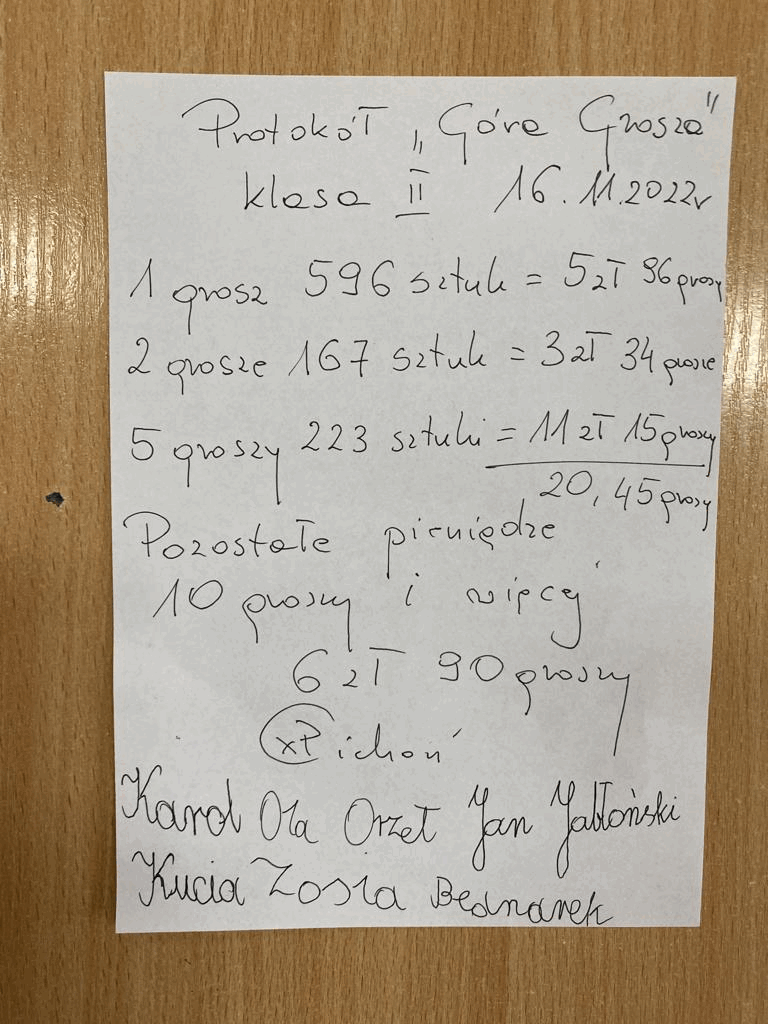 Protokół „Góra Grosza"
klasa II 16.11.2022r
1 grosz 596 sztuk = 5 zł 96 groszy
2 grosze 167 sztuk = 3 zł 34 grosze
5 groszy 223 sztuki = 11 zł 15 groszy
20,45 groszy
Pozostałe pieniądze
10 groszy i więcej
6 zł 90 groszy
xPichoń
Karol Ola Orzeł Jan Jabłoński
Kucia Zosia Bednarek